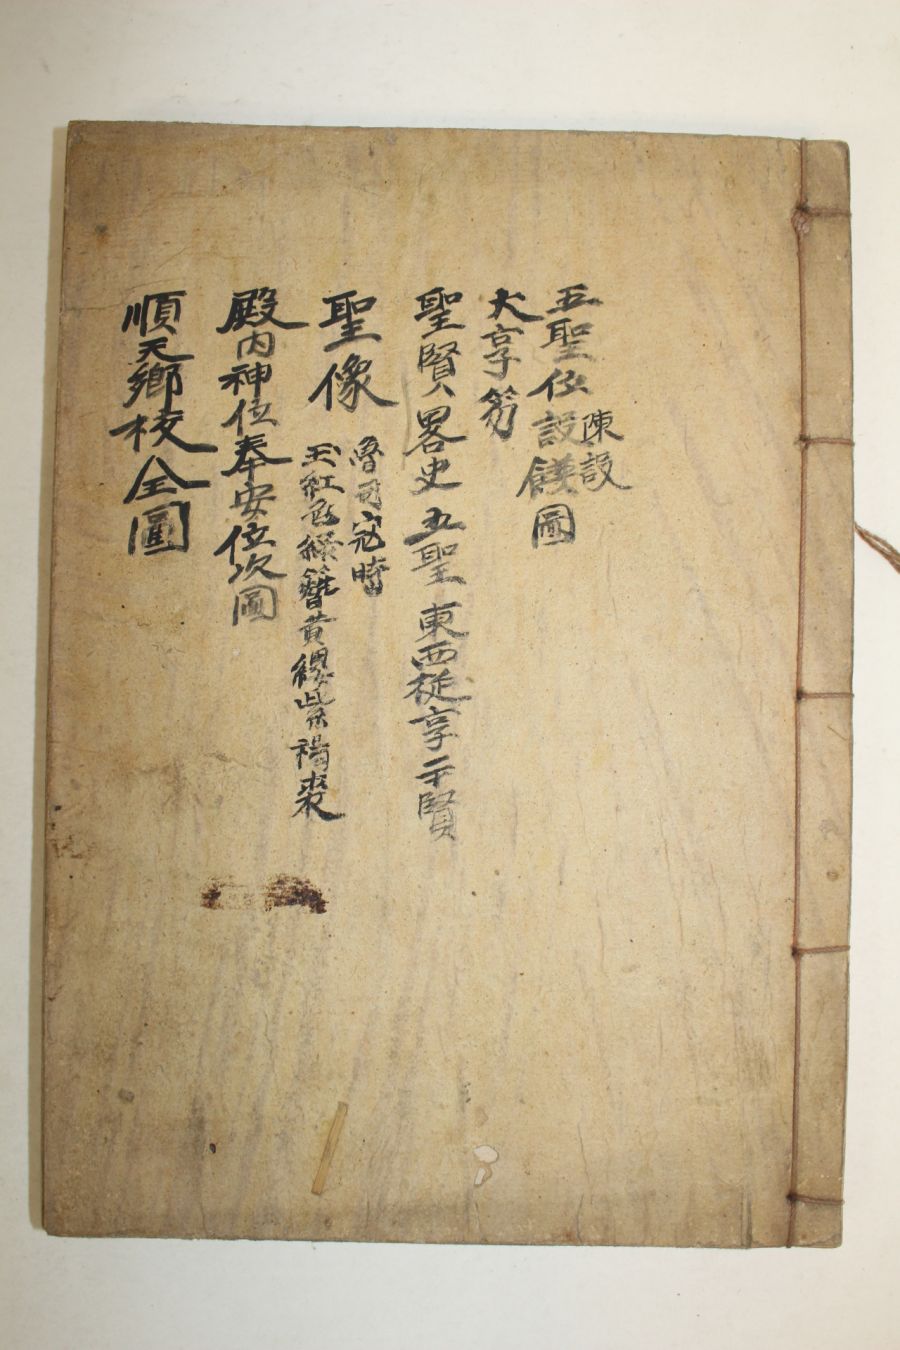 五聖位設饌圖
陳設
大享笏
聖賢畧史 五聖 東西從享二賢
聖像
魯司寇時
玉紅衣緣簪黃纓紫裼裘
殿内神位奉安位次圖
順天鄉校全圖